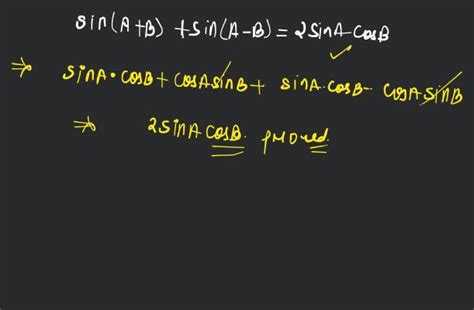 sin(A+B) + sin(A-B) = 2sinA cosB
⇒ sinA·cosB + cosAsinB + sinA·cosB - cosAsinB
⇒ 2sinAcosB. proved.